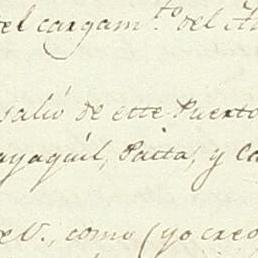 del cargam.to del
salió de este Puerto
ayaquil, Paita, y Ca
de V., como (yo creo